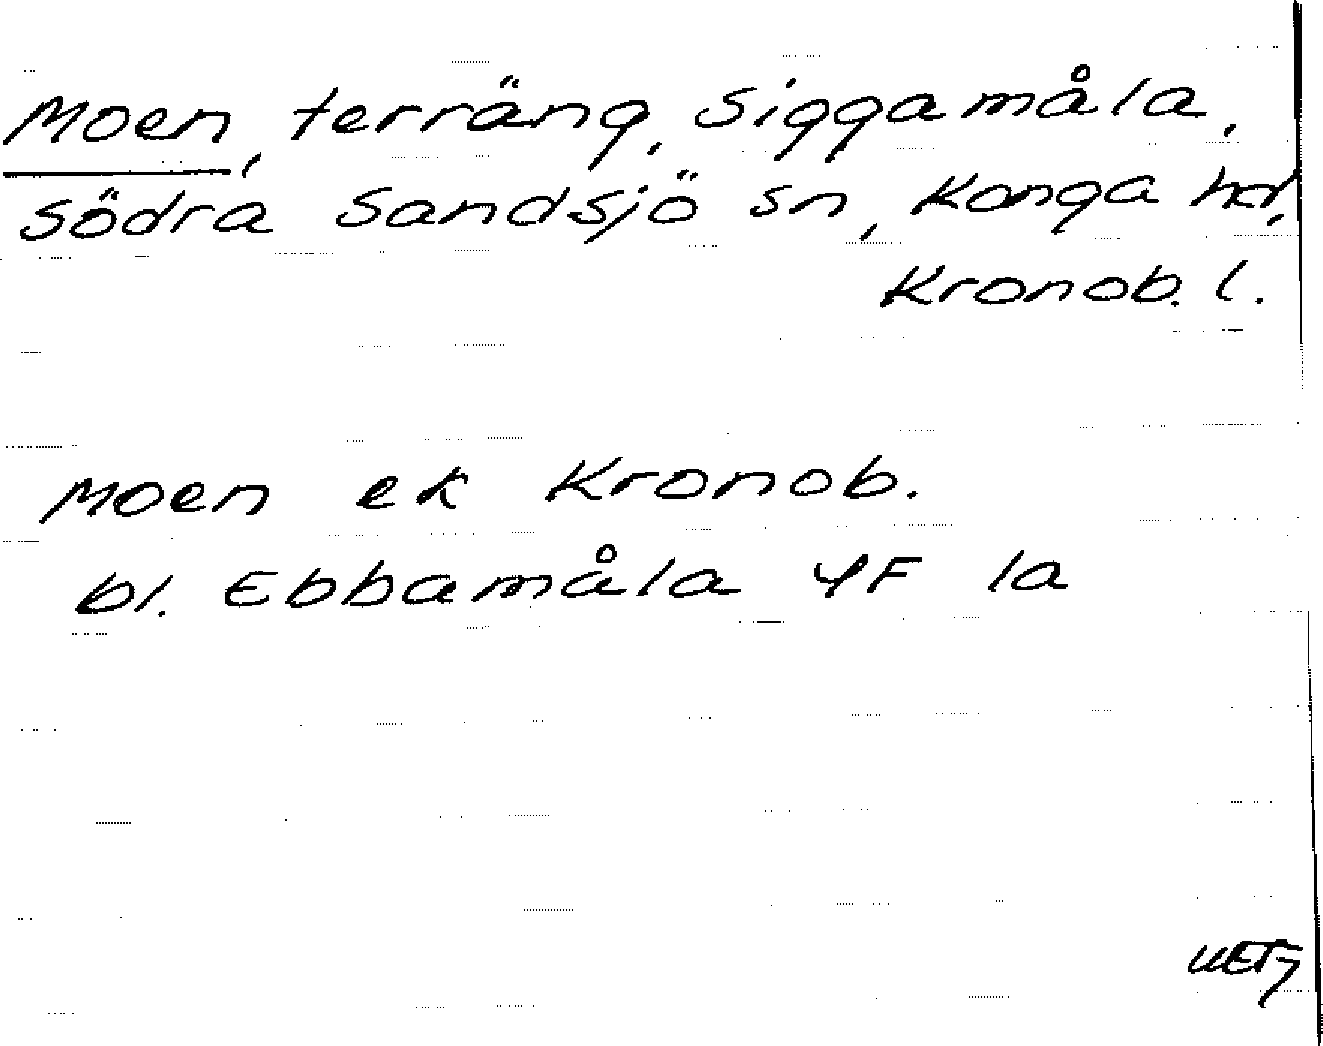 Moen, terräng, Siggamåla,
Södra Sandsjö sn, Konga hd,
Kronob. l.
Moen ek Kronob.
bl. Ebbamåla 4F 1a